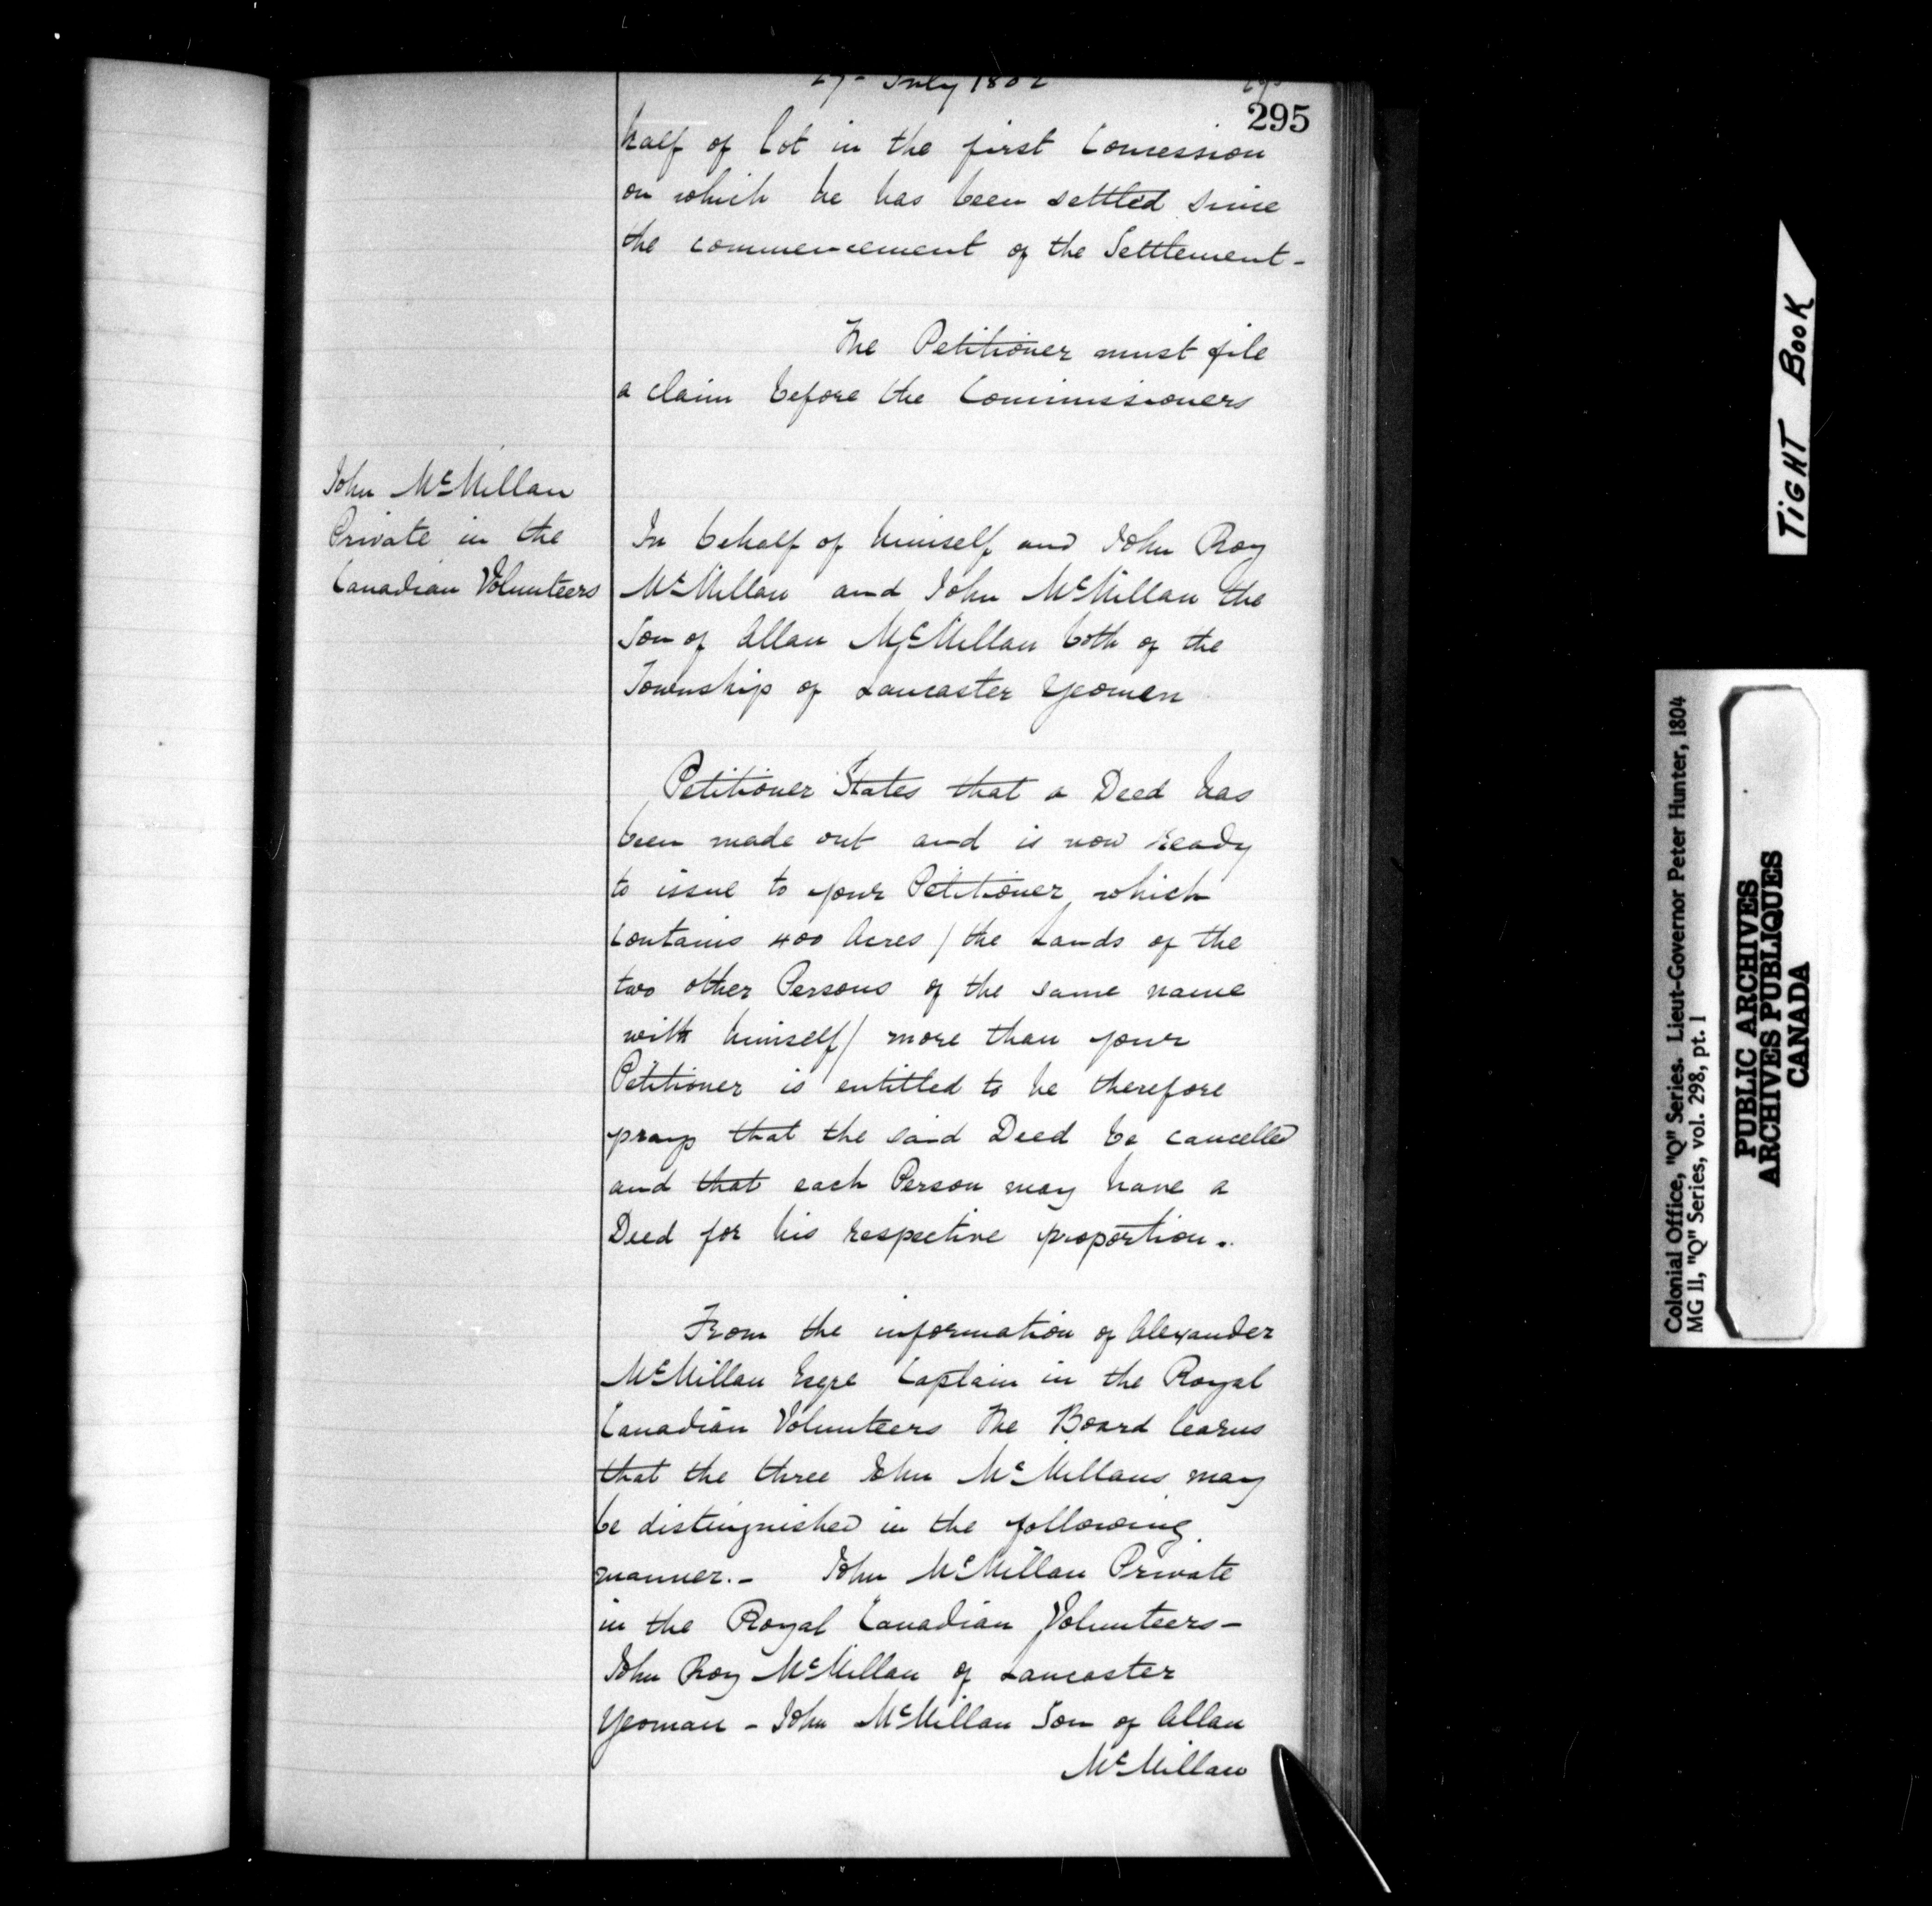 27- July 1802
295
half of Lot in the first Concession
on which he has been settled since
the commencement of the Settlement-
The Petitioner must file
a claim before the Commissioners
John McMillan
Private in the
Canadian Volunteers
In behalf of himself and John Roy
McMillan and John McMillan the
Son of Allan McMillan both of the
Township of Lancaster Yeomen
Petitioner States that a Deed has
been made out and is now ready
to issue to your Petitioner, which
contains 400 Acres / the Lands of the
two other Persons of the same name
with himself / more than your
Petitioner is entitled to he therefore
prays that the said Deed be cancelled
and that each Person may have a
Deed for his respective proportion.
From the information of Alexander
McMillan Esqre Captain in the Royal
Canadian Volunteers The Board learns
that the three John McMillans may
be distinguished in the following
manner.- John McMillan Private
in the Royal Canadian Volunteers-
John Roy McMillan of Lancaster
Yeoman - John McMillan Son of Allan
McMillan
TiGHT BooK
Colonial Office, "Q" Series. Lieut-Governor Peter Hunter, 1804
MG 11, "Q" Series, vol. 298, pt. 1
PUBLIC ARCHIVES
ARCHIVES PUBLIQUES
CANADA